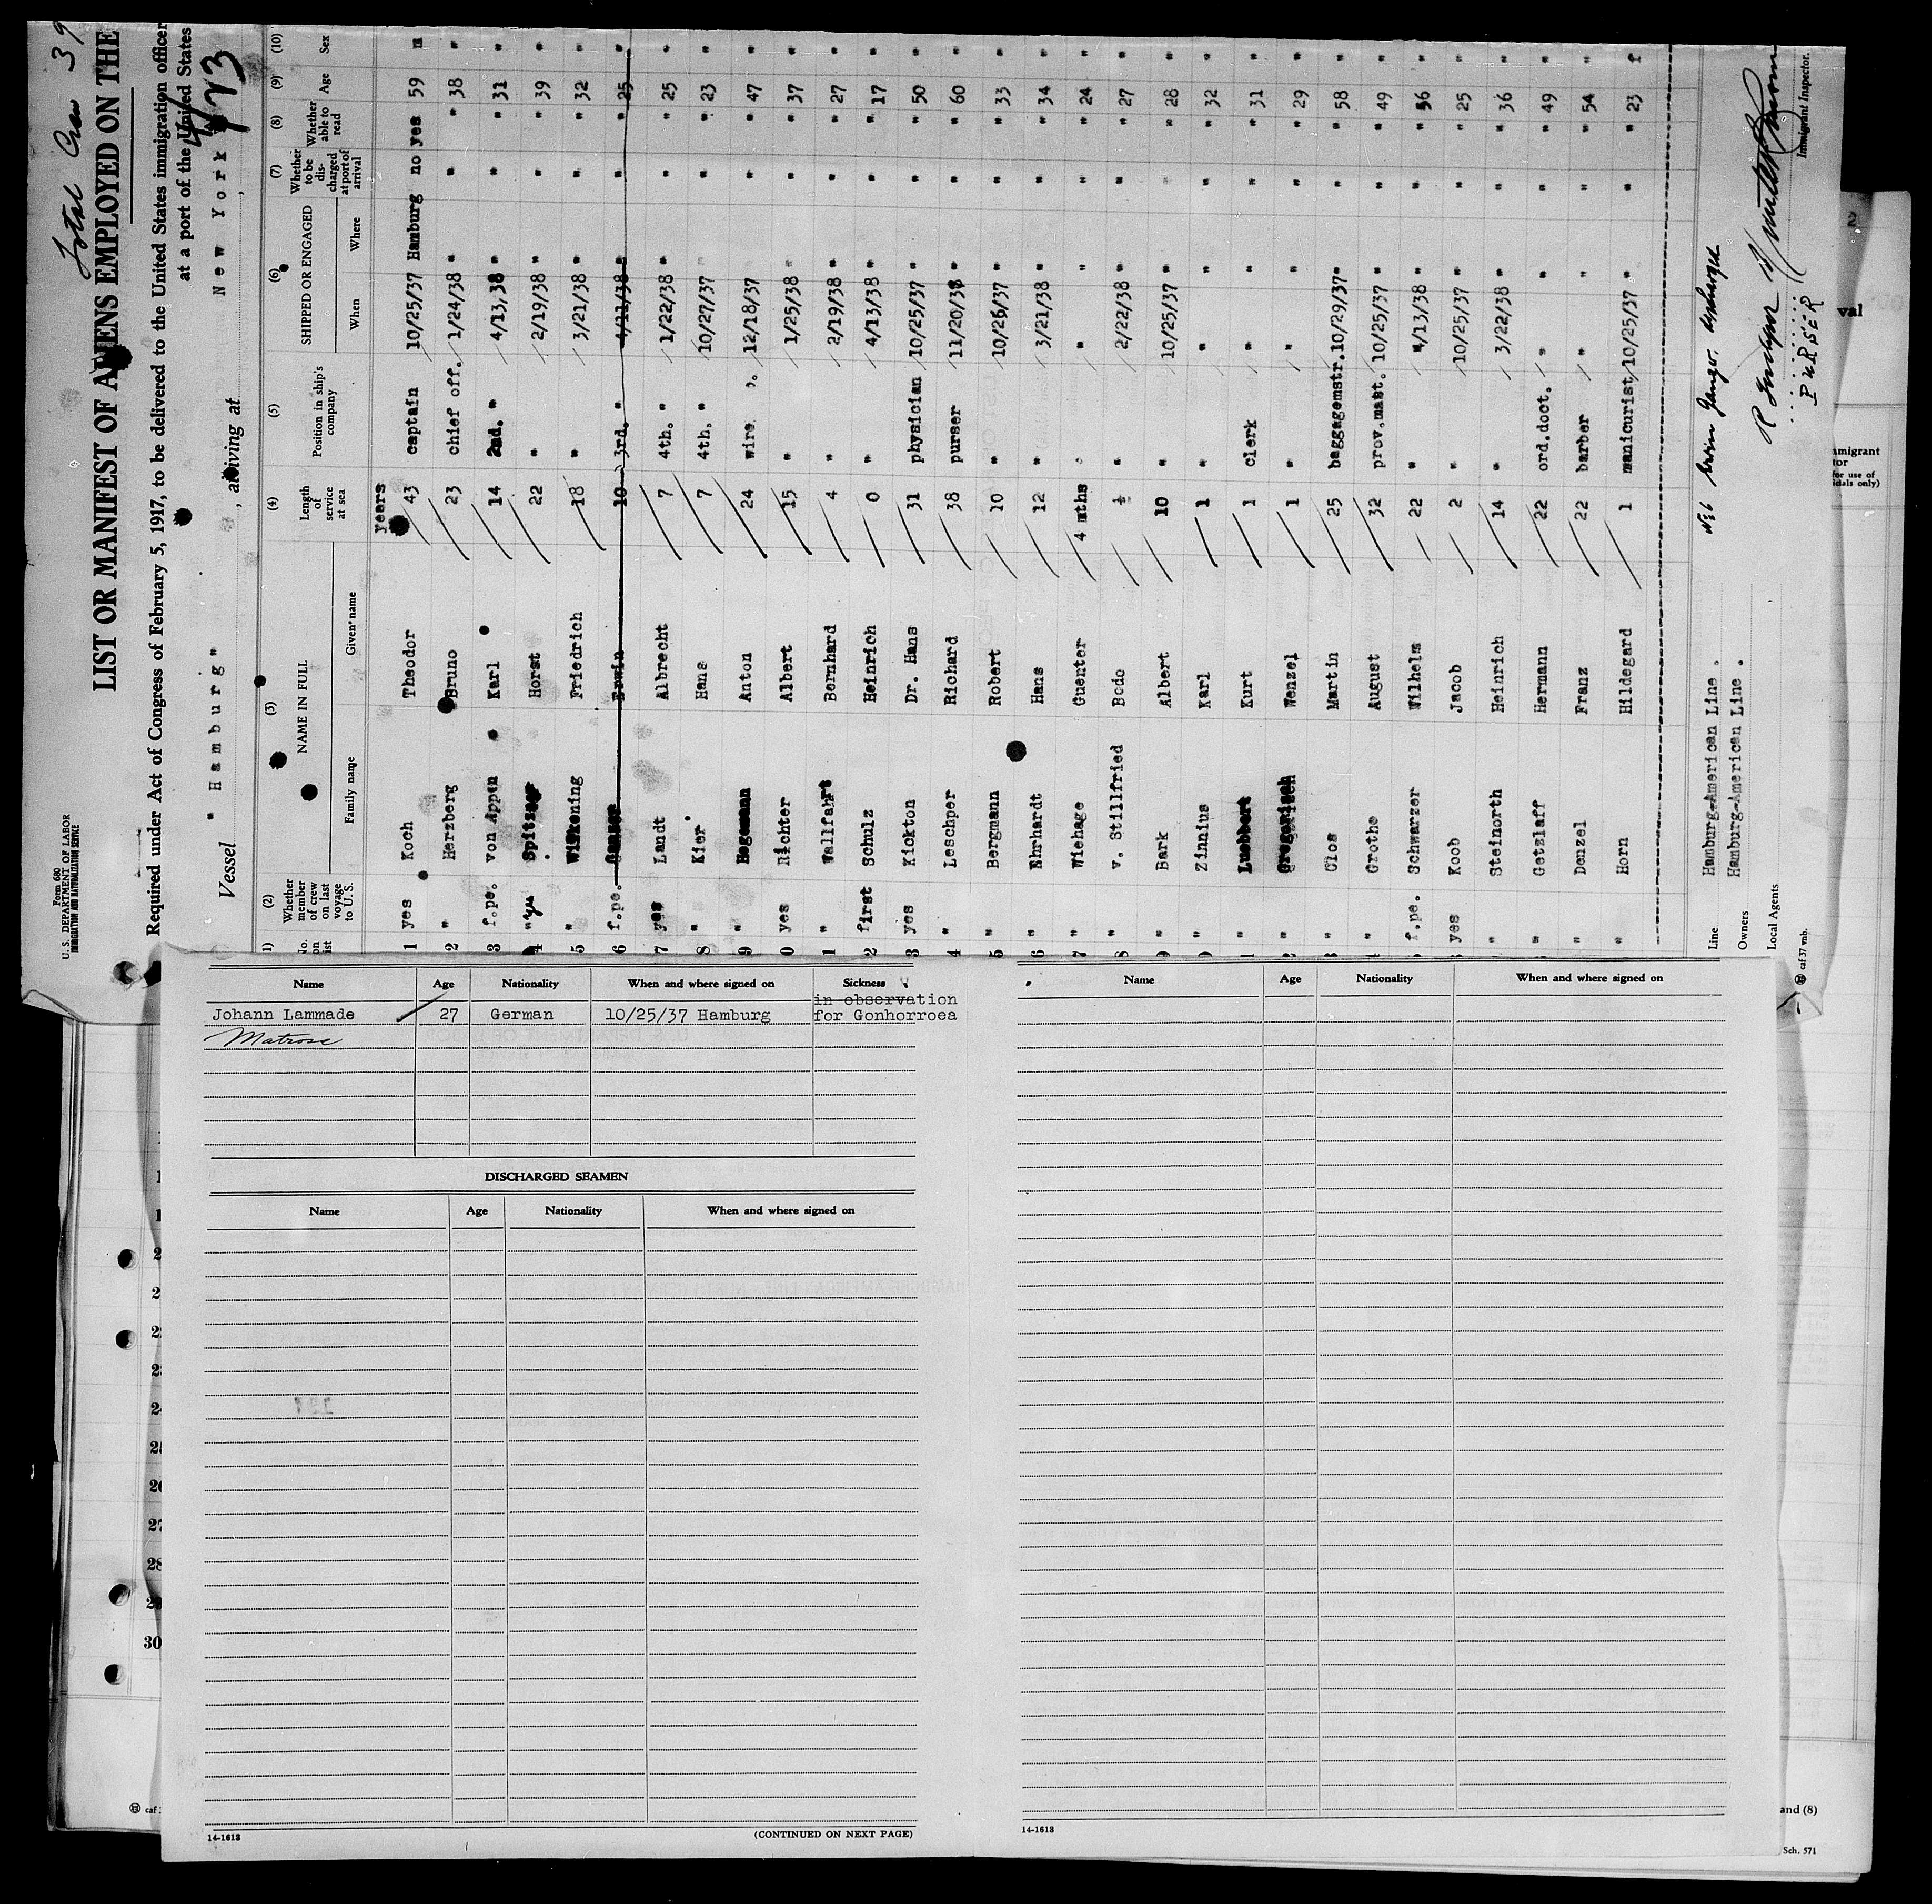 Total Crew 39
Form 680
U.S. DEPARTMENT OF LABOR
IMMIGRATION AND NATURALIZATION SERVICE
LIST OR MANIFEST OF ALIENS EMPLOYED ON THE
Required under Act of Congress of February 5, 1917, to be delivered to the United States immigration officer
at a port of the United States
Vessel " Hamburg " , arriving at New York ,
(2) (3) (4) (5) (6) (7) (8) (9) (10)
No. on list Whether member of crew on last voyage to U.S. NAME IN FULL Family name Given name Length of service at sea Position in ship's company SHIPPED OR ENGAGED When Where Whether to be discharged at port of arrival Whether able to read Age Sex
years
1 yes Koch Theodor 43 captain 10/25/37 Hamburg no yes 59 m
2 " Herzberg Bruno 23 chief off. 1/24/38 " " " 38 "
3 f.pe. von Appen Karl 14 2nd. " 4/13/38 " " " 31 "
4 " Spitzer Horst 22 " 2/19/38 " " " 39 "
5 " Friedrich 18 " 3/21/38 " " " 32 "
6 f.pe. Erwin 10 3rd. " 4/11/38 " " " 25 "
7 yes Landt Albrecht 7 4th. " 1/22/38 " " " 25 "
8 " Kier Hans 7 4th. " 10/27/37 " " " 23 "
9 " Hegemann Anton 24 wire. 12/18/37 " " " 47 "
0 yes Richter Albert 15 " 1/25/38 " " " 37 "
1 " Wallfahrt Bernhard 4 " 2/19/38 " " " 27 "
2 first Schulz Heinrich 0 " 4/13/38 " " " 17 "
3 yes Kickton Dr. Hans 31 physician 10/25/37 " " " 50 "
4 " Leschper Richard 38 purser 11/20/38 " " " 60 "
5 " Bergmann Robert 10 " 10/26/37 " " " 33 "
6 " Ehrhardt Hans 12 " 3/21/38 " " " 34 "
7 " Wiehage Guenter 4 mths " " " " " 24 "
8 " v. Stillfried Bodo ½ " 2/22/38 " " " 27 "
9 " Bark Albert 10 " 10/25/37 " " " 28 "
0 " Zinnius Karl 1 " " " " " 32 "
1 " Luebbert Kurt 1 clerk " " " " 31 "
2 " Gregoritsch Wenzel 1 " " " " " 29 "
3 " Clos Martin 25 baggagemstr. 10/29/37 " " " 58 "
4 " Grothe August 32 prov.matt. 10/25/37 " " " 49 "
5 f.pe. Schwarzer Wilhelm 22 " 4/13/38 " " " 56 "
6 yes Koob Jacob 2 " 10/25/37 " " " 25 "
7 " Steinorth Heinrich 14 " 3/22/38 " " " 36 "
8 " Getzlaff Hermann 22 ord.doct. " " " " 49 "
9 " Denzel Franz 22 barber " " " " 54 "
" Horn Hildegard 1 manicurist 10/25/37 " " " 23 f
Line Hamburg-American Line .
Owners Hamburg-American Line .
Local Agents
PURSER
Immigrant Inspector.
caf 37 mb.
Name Age Nationality When and where signed on Sickness
in observation
Johann Lammade 27 German 10/25/37 Hamburg for Gonhorroea
Matrose
DISCHARGED SEAMEN
Name Age Nationality When and where signed on
14-1613 (CONTINUED ON NEXT PAGE)
Name Age Nationality When and where signed on
14-1613
2
val
mmigrant
tor
for use of
icials only)
26
27
30
caf
and (8)
Sch. 571